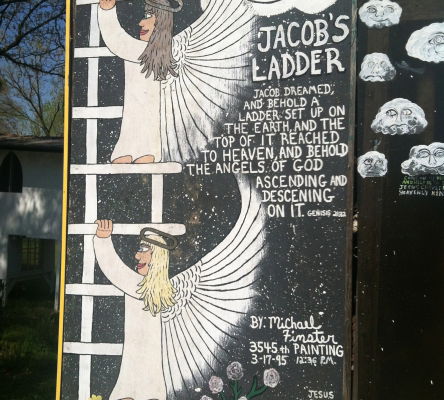 JACOB'S
LADDER
JACOB DREAMED,
AND BEHOLD A
LADDER SET UP ON
THE EARTH, AND THE
TOP OF IT REACHED
TO HEAVEN, AND BEHOLD
THE ANGELS OF GOD
ASCENDING AND
DESCENING
ON IT. GENISIS 28:12
BY: Michael
Finster
3545th PAINTING
3-17-95 12:36 P.M.
JESUS